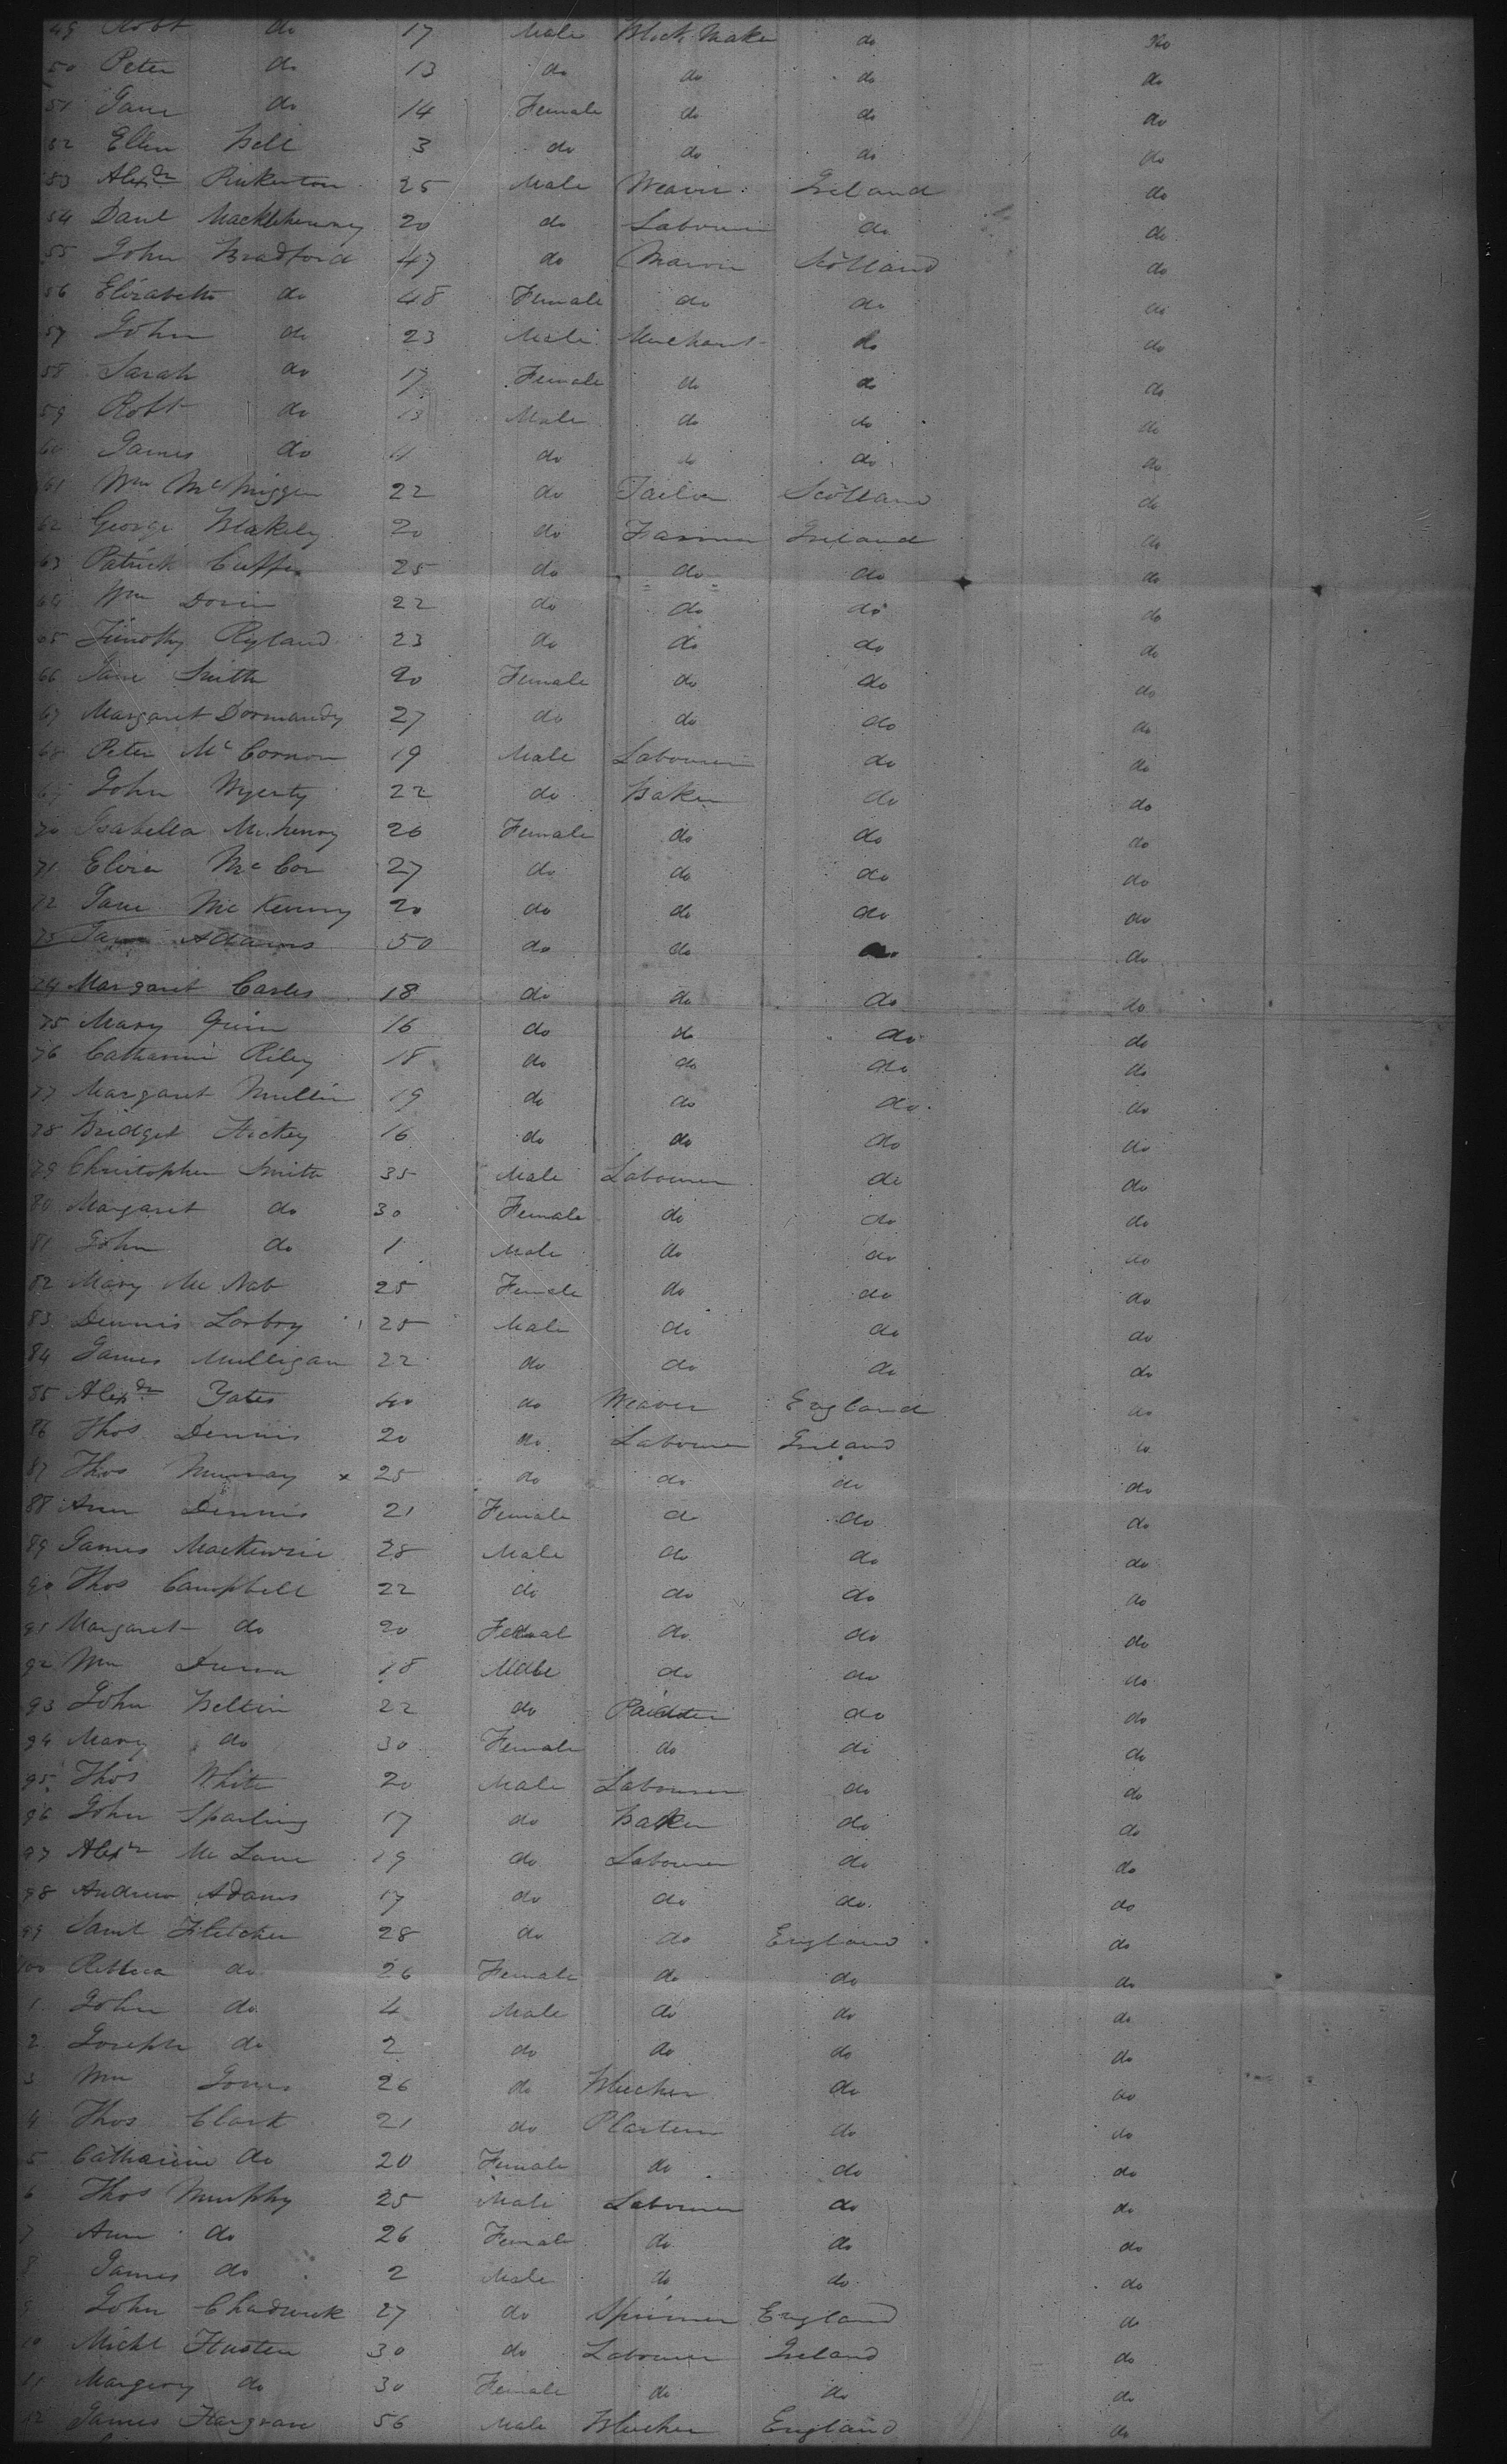 49 Robt do 17 Male Block Maker do do
50 Peter do 13 do do do do
51 Jane do 14 Female do do do
52 Ellen Bell 3 do do do do
53 Alexdr Pinkerton 25 Male Weaver Ireland do
54 Danl 20 do Labourer do do
55 John Bradford 47 do Scotland do
56 Elizabeth do 48 Female do do do
57 John do 23 Male Merchant do do
58 Sarah do 17 Female do do do
59 Robt do 13 Male do do do
60 James do do do do do
61 Wm 22 do Tailor Scotland do
62 George Blakely 20 do Farmer Ireland do
63 Patrick 25 do do do do
64 Wm 22 do do do do
65 Timothy Ryland 23 do do do do
66 Jane Smith 20 Female do do do
67 Margaret Dormandy 27 do do do do
68 Peter Mc Connon 19 Male Labourer do do
69 John 22 do Baker do do
70 Isabella McHenry 26 Female do do do
71 Eliza 27 do do do do
72 Jane 20 do do do do
73 Jane Adams 50 do do do do
74 Margaret 18 do do do do
75 Mary Quin 16 do do do do
76 Catharine Riley 18 do do do do
77 Margaret Mullin 19 do do do do
78 Bridget Hickey 16 do do do do
79 Christopher Smith 35 Male Labourer do do
80 Margaret do 30 Female do do do
81 John do 1 Male do do do
82 Mary Mc Nab 25 Female do do do
83 Dennis 25 Male do do do
84 James Mulligan 22 do do do do
85 Alexdr Yates 40 do Weaver England do
86 Thos Dennis 20 do Labourer Ireland do
87 Thos Murray x 25 do do do do
88 Ann Dennis 21 Female do do do
89 James Mackenzie 28 Male do do do
90 Thos Campbell 22 do do do do
91 Margaret do 20 do do do
92 Wm 18 Male do do do
93 John Beltin 22 do do do
94 Mary do 30 Female do do do
95 Thos White 20 Male Labourer do do
96 John Sparling 17 do Baker do do
97 Alexr Mc Lane 19 do Labourer do do
98 Andrew Adams 17 do do do do
99 Saml Fletcher 28 do do England do
100 Rebecca do 26 Female do do do
1 John do 4 Male do do do
2 Joseph do 2 do do do do
3 Wm Jones 26 do do do
4 Thos Clark 21 do do do
5 Catharine do 20 Female do do do
6 Thos Murphy 25 Male Labourer do do
7 Ann do 26 Female do do do
8 James do 2 Male do do do
9 John Chadwick 27 do Spinner England do
10 Michl 30 do Labourer Ireland do
11 Margery do 30 Female do do do
12 James 56 Male England do